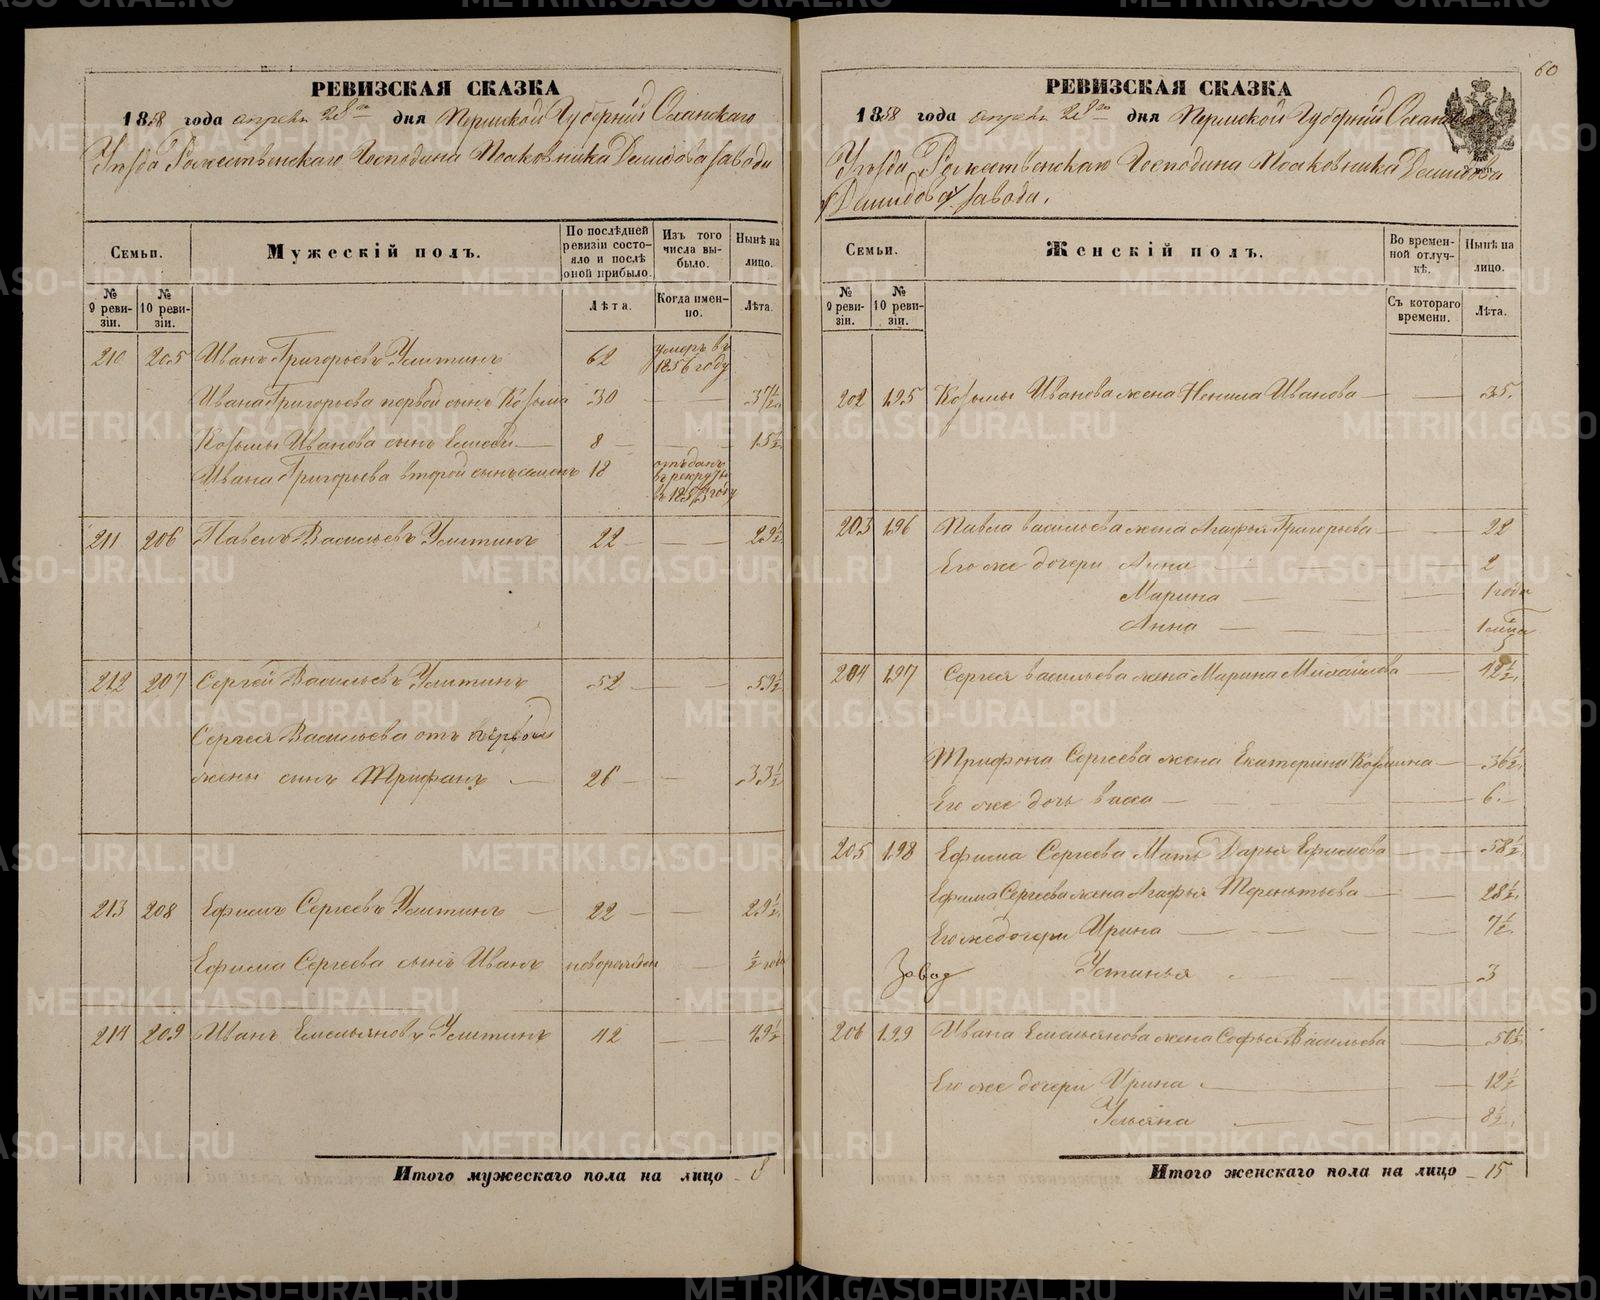 60
РЕВИЗСКАЯ СКАЗКА
1858 года апреля 28го дня Пермской Губернии Оханскаго
Уѣзда Рождественскаго Господина Полковника Демидова завода
Семьи.
Мужескій полъ.
По послѣдней ревизіи состояло и послѣ оной прибыло.
Изъ того числа выбыло.
Нынѣ на лицо.
№ 9 ревизіи.
№ 10 ревизіи.
Лѣта.
Когда именно.
Лѣта.
210 205 Иванъ Григорьевъ Устинъ 62 умеръ въ 1856 году
Ивана Григорьева первой сынъ Козьма 30 — — 37½
Козьмы Ивановa сынъ 8 — 15½
Ивана Григорьева второй сынъ Семенъ 18 отъданъ въ рекруты году
211 206 Павелъ Васильевъ 22 — — 29½
212 207 Сергѣй Васильевъ 52 — — 59½
Сергея Васильева отъ первой
жены сынъ Трифанъ — 26 — — 33½
213 208 Ефимъ Сергеевъ — 22 — — 29½
Ефима Сергеева сынъ Иванъ новорожден — ½ года
214 209 Иванъ Емельяновъ 42 — — 49½
Итого мужескаго пола на лицо 8
РЕВИЗСКАЯ СКАЗКА
1858 года апреля 28го дня Пермской Губернии
Уѣзда Рождественскаго Господина Полковника Демидова
Демидова завода.
Семьи.
Женскій полъ.
Во временной отлучкѣ.
Нынѣ на лицо.
№ 9 ревизіи.
№ 10 ревизіи.
Съ котораго времени.
Лѣта.
202 195 Козьмы Иванова жена Ненила Иванова — — 35.
203 196 Павла васильева жена Агафья Григорьева — — 22
Его же дочери Анна — — 2
Марина — — 1 года
Анна — — 1
204 197 Сергея васильева жена Марина Михайлова — — 42½
Трифона Сергеева жена Екатерина Козмина — 36½
Его же дочь васса — — 6
205 198 Ефима Сергеева Мать Дарья Ефимова — — 58½
Ефима Сергеева жена Агафья Терентьева — — 28½
Его же дочери Ирина — — 7½
завод Устинья — — 3
206 199 Ивана Емельянова жена Софья Васильева — — 50½
Его же дочери Ирина — — 12½
Ульяна — — 8½
Итого женскаго пола на лицо 15